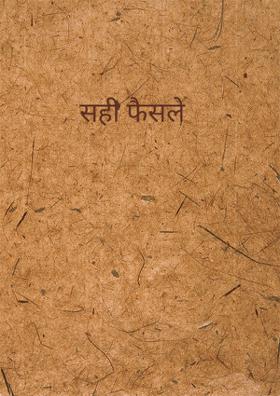 सही फैसले